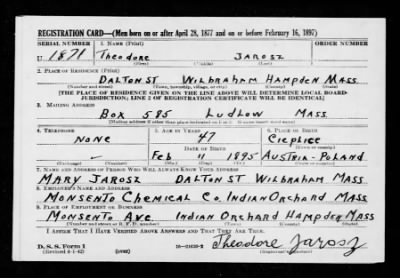 REGISTRATION CARD—(Men born on or after April 28, 1877 and on or before February 16, 1897)
SERIAL NUMBER 1. NAME (Print)
U 1871 Theodore JAROSZ
(First) (Middle) (Last)
2. PLACE OF RESIDENCE (Print)
DALTON ST WILBRAHAM HAMPDEN MASS.
(Number and street) (Town, township, village, or city) (County) (State)
[THE PLACE OF RESIDENCE GIVEN ON THE LINE ABOVE WILL DETERMINE LOCAL BOARD
JURISDICTION; LINE 2 OF REGISTRATION CERTIFICATE WILL BE IDENTICAL]
3. MAILING ADDRESS
BOX 585 LUDLOW MASS.
[Mailing address if other than place indicated on line 2. If same insert word same]
4. TELEPHONE 5. AGE IN YEARS 6. PLACE OF BIRTH
NONE 47 CIEPLICE
DATE OF BIRTH (Town or county)
Feb 11 1895 AUSTRIA-POLAND
(Exchange) (Number) (Mo.) (Day) (Yr.) (State or country)
7. NAME AND ADDRESS OF PERSON WHO WILL ALWAYS KNOW YOUR ADDRESS
MARY JAROSZ DALTON ST WILBRAHAM MASS.
8. EMPLOYER'S NAME AND ADDRESS
MONSENTO CHEMICAL CO. INDIAN ORCHARD MASS.
9. PLACE OF EMPLOYMENT OR BUSINESS
MONSENTO AVE INDIAN ORCHARD HAMPDEN MASS
(Number and street or R. F. D. number) (Town) (County) (State)
I AFFIRM THAT I HAVE VERIFIED ABOVE ANSWERS AND THAT THEY ARE TRUE.
D. S. S. Form 1
(Revised 4-1-42) (over) Theodore Jarosz